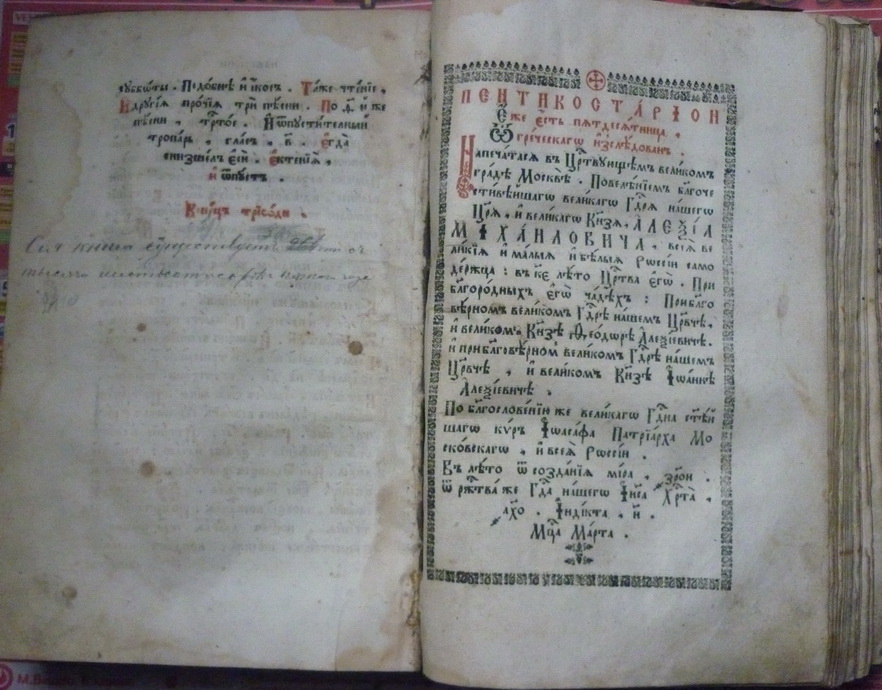 суббѡты . Подо́бнѣ и҆ і҆кос . Та́же чте́нїе ,
И҆ дрꙋгі́ѧ про́чїѧ три́ пѣ́сни . По ѳ҃ . й же
пѣ́сни , трⷭ҇то́е . И҆ ѿпꙋсти́тельный
тропа́рь , гла́съ . в҃ . Е҆гда̀
снизше́лъ є҆сѝ . є҆ктенїѧ̀ ,
и҆ ѿпꙋ́стъ .
Коне́цъ трїѡ́ди .
Сия книга
ПЕНТИКОСТА́РЇОН
Е҆́же є҆́сть пѧтдесѧ́тница ,
Ѿ гре́ческагѡ и҆зслѣ́дованъ .
Напеча́тасѧ въ Црⷭ҇твꙋющемъ вели́комъ
гра́дѣ Москвѣ̀ . Повелѣ́нїемъ бл҃гоче
сти́вѣйшагѡ вели́кагѡ Гдⷭ҇рѧ на́шегѡ
Цр҃ѧ̀ , и҆ вели́кагѡ Кн҃зѧ , А҆ЛЕѮІ́Ѧ
МІХА́ИЛОВИЧА , всеѧ̀ ве
ли́кїѧ и҆ ма́лыѧ и҆ бѣ́лыѧ Рѡссі́и само
де́ржца : въ к҃є лѣ́то Црⷭ҇тва є҆гѡ̀ . При
бл҃горо́дныхъ є҆гѡ̀ ча́дѣхъ : При бл҃го
вѣ́рномъ вели́комъ Гдⷭ҇рѣ на́шемъ Цр҃вчѣ ,
и҆ вели́комъ Кн҃зѣ Ѳео́дѡрѣ А҆леѯі́евичѣ .
и҆ при бл҃говѣ́рномъ вели́комъ Гдⷭ҇рѣ на́шемъ
Цр҃вчѣ , и҆ вели́комъ Кн҃зѣ І҆ѡа́ннѣ
А҆леѯі́евичѣ .
По бл҃гослове́нїю же вели́кагѡ Гдⷭ҇на ст҃ѣ́й
шагѡ кѵ́ръ І҆ѡаса́фа Патрїа́рха Мо
ско́вскагѡ , и҆ всеѧ̀ Рѡссі́и .
Въ лѣ́то ѿ созда́нїѧ мі́ра , ҂зро́и .
ѿ ржⷭ҇тва́ же Гдⷭ҇а на́шегѡ І҆и҃са Хрⷭ҇та̀ ,
҂ахо҃ . І҆ндїкта , и҃ .
Мцⷭ҇а Ма́рта .